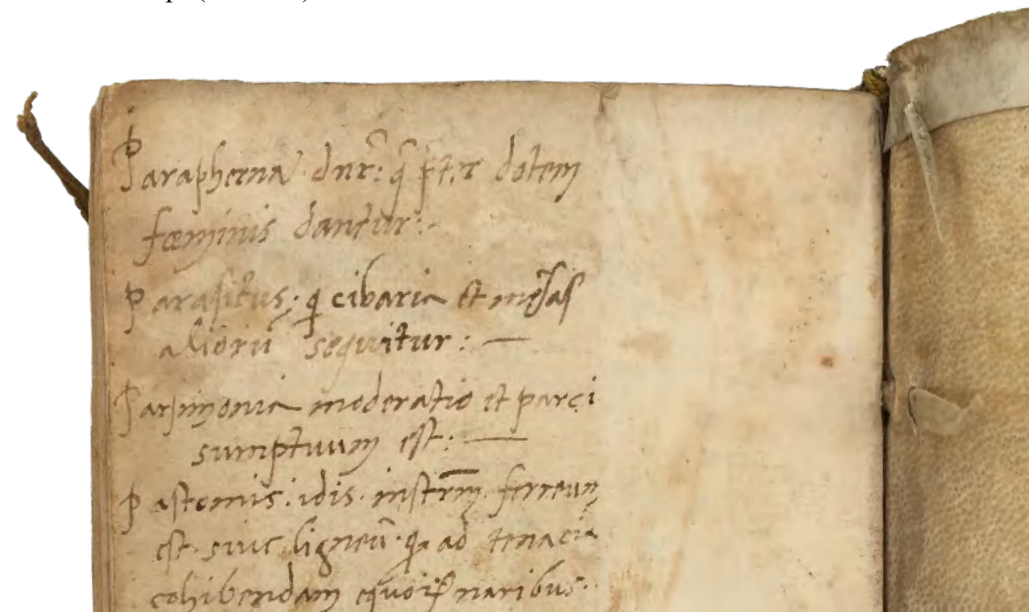 Parapherna dnr̄: q̄ p̄ter dotem
fœminis dantur:
Parasitus: q̄ cibaria et mēsas
aliorū sequitur: —
Parsimonia moderatio et parci
sumptuum est: —
Pastomis. idis. instrm̄. ferreum
est. siue ligneū. q ad tenacia
cohibendam equoꝝ naribus.